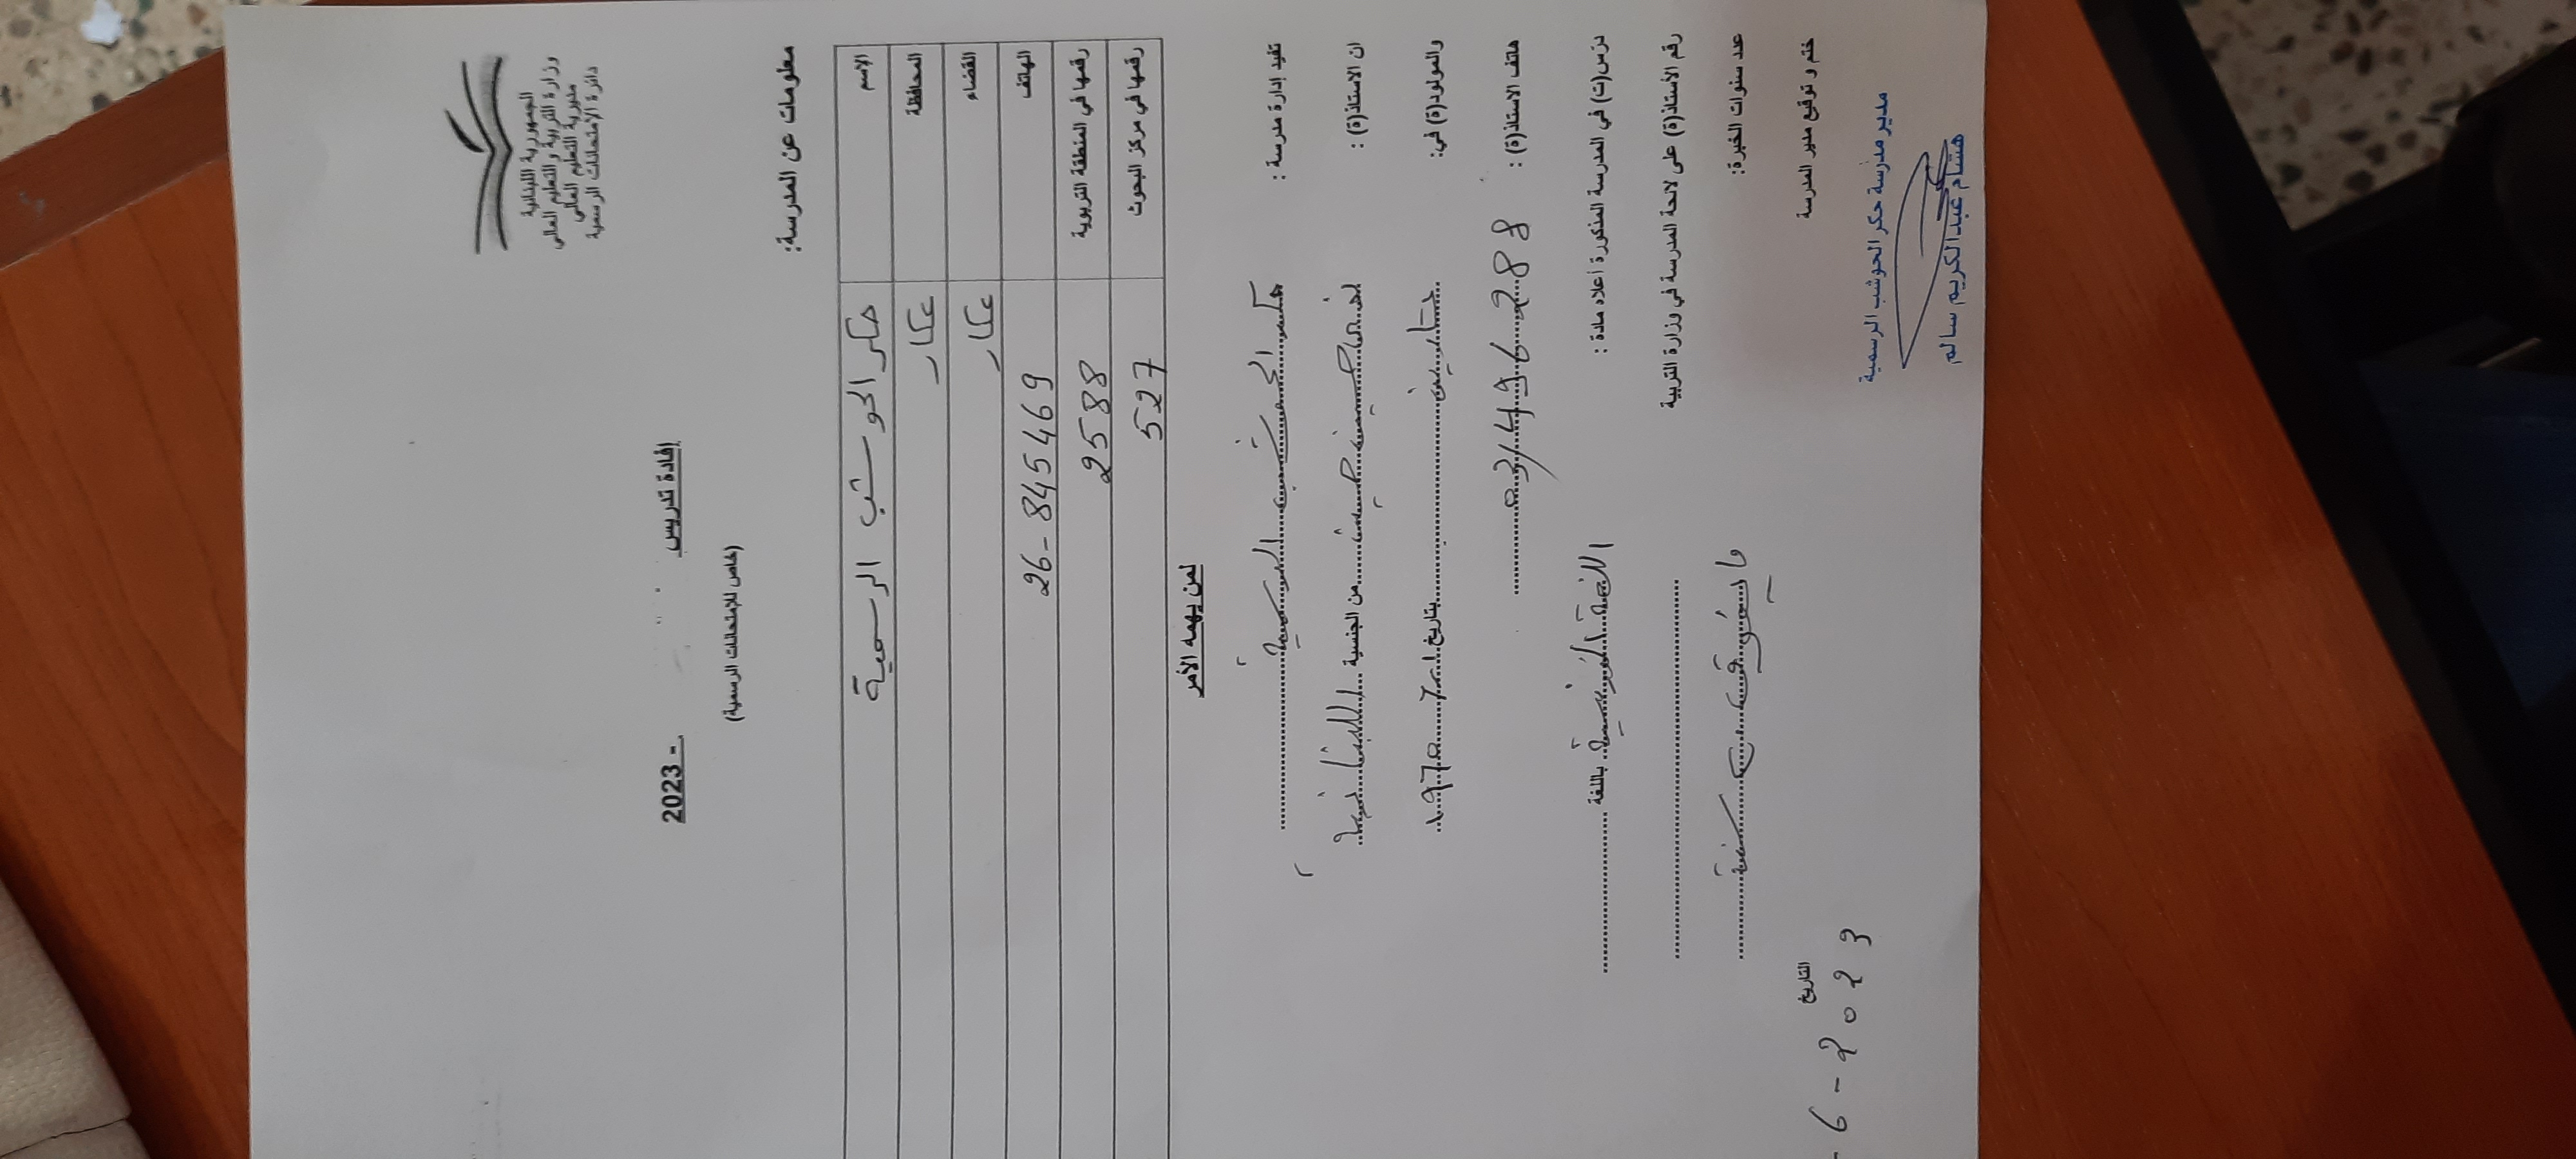 الجمهورية اللبنانية
وزارة التربية والتعليم العالي
مديرية التعليم العالي
دائرة الامتحانات الرسمية
إفادة تدريس - 2023
(خاص للإمتحانات الرسمية)
معلومات عن المدرسة:
الإسم حكر الحوشب الرسمية
المحافظة عكار
القضاء عكار
الهاتف 26-845469
رقمها في المنطقة التربوية 2588
رقمها في مركز البحوث 527
لمن يهمه الأمر
تفيد إدارة مدرسة : حكر الحوشب الرسمية
ان الاستاذ(ة) : من الجنسية اللبنانية
والمولود(ة) في: بتاريخ
هاتف الاستاذ(ة) : 03/496288
درّس(ت) في المدرسة المذكورة أعلاه مادة : اللغة الفرنسية باللغة
رقم الأستاذ(ة) على لائحة المدرسة في وزارة التربية
عدد سنوات الخبرة: سنة
ختم و توقيع مدير المدرسة التاريخ
6 - 2023
مدير مدرسة حكر الحوشب الرسمية
هشام عبد الكريم سالم